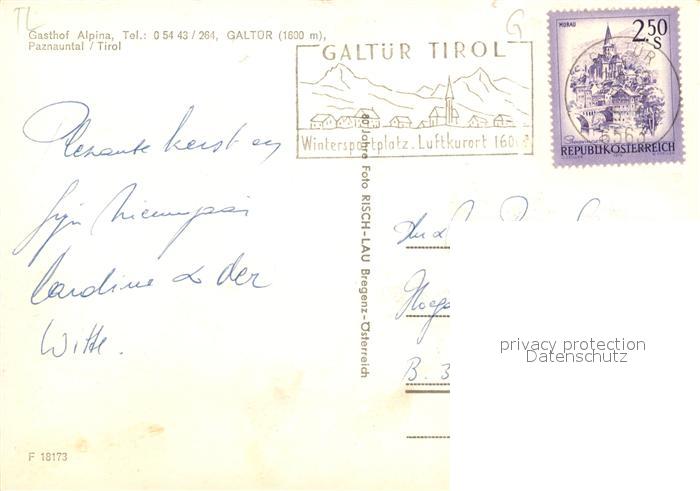 TL
G
Gasthof Alpina, Tel.: 0 54 43 / 264, GALTÜR (1600 m),
Paznauntal / Tirol
GALTÜR TIROL
Wintersportplatz. Luftkurort 1600
MURAU
2.50
S
6563
REPUBLIK ÖSTERREICH
80 Jahre Foto RISCH-LAU Bregenz-Österreich
Plezante Kerst en
fijn
Caroline & der
Witte.
B. 3
privacy protection
Datenschutz
F 18173